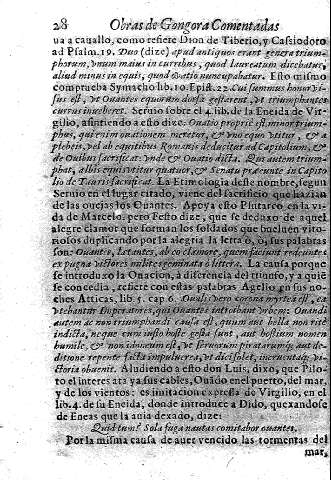 28 Obras de Gongora Comentadas
ua a cauallo, como refiere Dion de Tiberio, y Cassiodoro
ad Psalm. 19. Duo (dize) apud antiquos erant genera trium-
phorum, vnum maius in curribus, quod laureatum dicebatur,
aliud minus in equis, quod ouatio nuncupabatur. Esto mismo
comprueba Symacho lib. 10. Epist. 22. Cui summus honor vi-
sus est, vt Ouantes equorum dorsa gestarent, vt triumphantes
currus inueherét. Seruio sobre el 4. lib. de la Eneida de Vir-
gilio, assintiendo a esto dize. Ouatio propriè est minor trium-
phus, qui enim ouationem meretur, & vno equo vtitur, & à
plebeis, vel ab equitibus Romanis deducitur ad Capitolium, &
de Ouibus sacrificat: vnde & Ouatio dicta. Qui autem trium-
phat, albis equis vtitur quatuor, & Senatu praeeunte in Capito
lio de Tauris sacrificat. La Etimologia deste nombre, segun
Seruio en el lugar citado, viene del sacrificio que hazian
de las ouejas los Ouantes. Apoya esto Plutarco en la vi-
da de Marcelo, pero Festo dize, que se deduxo de aquel
alegre clamor que forman los soldados que bueluen vito-
riosos duplicando por la alegria la letra ò, ò, sus palabras
son: Ouantes, Lætantes, ab eo clamore, quem faciunt redeuntes
ex pugna victores milites geminata o littera. La causa porque
se introduxo la Ouacion, à diferencia del triunfo, y a quie
se concedia, refiere con estas palabras Agelio en sus no-
ches Atticas, lib. 5. cap. 6. Oualis vero corona myrtea est, ea
vtebantur Imperatores, qui Ouantes introibant vrbem: Ouandi
autem ac non triumphandi causa est, quum aut bella non ritè
indicta, neque cum iusto hoste gesta sunt, aut hostium nomen
humile, & non idoneum est, vt seruorum piratarumque, aut de-
ditione repente facta impuluerea, vt dici solet, incruentaque vi-
ctoria obuenit. Aludiendo a esto don Luis, dixo, que Pilo-
to el interes ata ya sus cables, Ouãdo en el puerto, del mar,
y de los vientos: es imitacion expressa de Virgilio, en el
lib. 4. de su Eneida, donde introduce a Dido, quexandose
de Eneas que la auia dexado, dize:
Quid tum? Sola fuga nautas comitabor ouantes.
Por la misma causa de auer vencido las tormentas del
mar,